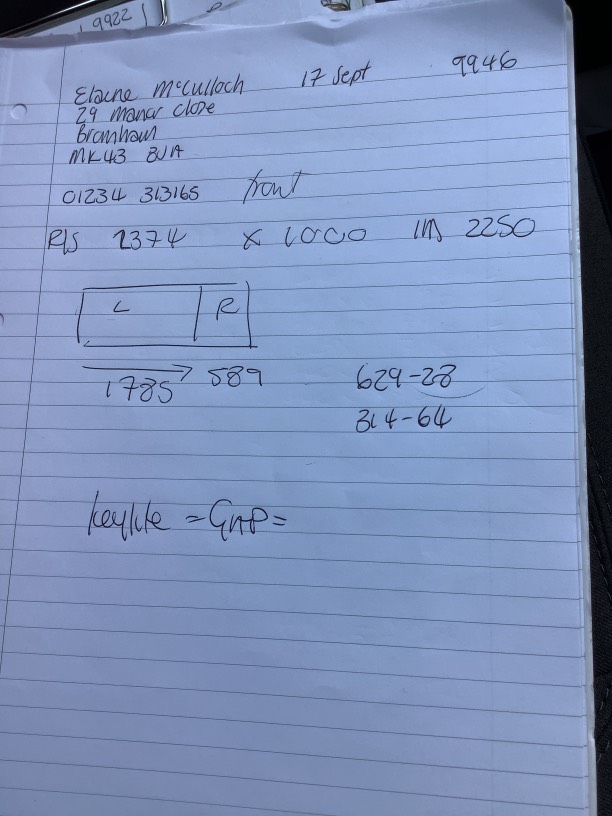 9922
Elaine McCulloch 17 Sept 9946
29 Manor Close
Bromham
MK43 8JA
01234 313165 front
R/S 2374 x 1000 ins 2250
L R
1785 589
629-28
314-64
keylite = GAP=